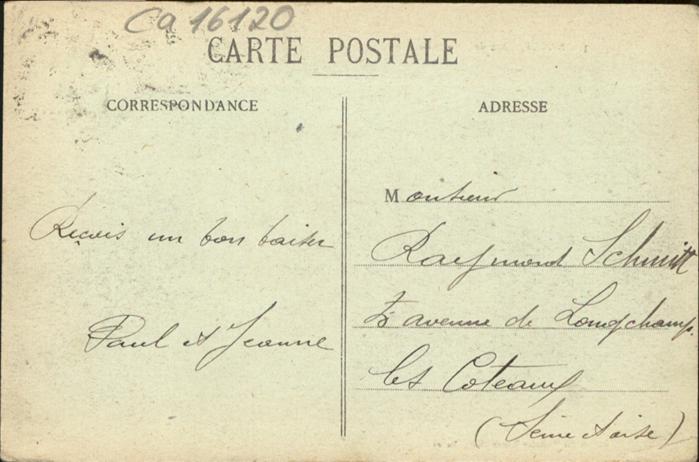 Ca 16120
CARTE POSTALE
CORRESPONDANCE
Reçois un bon baiser
Paul et Jeanne
ADRESSE
Monsieur
Raymond Schmitt
avenue de Longchamp
les Coteaux
(Seine et oise)